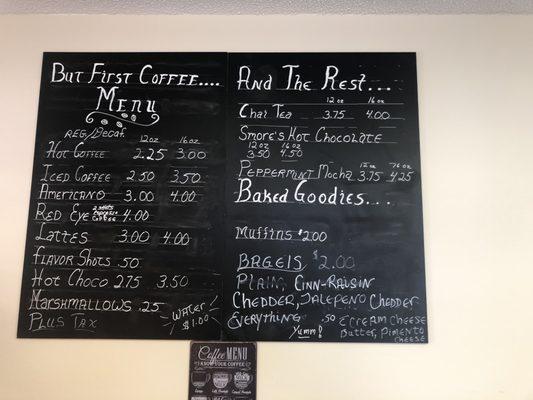 But First Coffee....
Menu
Reg/Decaf. 12 oz 16 oz
Hot Coffee 2.25 3.00
Iced Coffee 2.50 3.50
Americano 3.00 4.00
Red Eye 2 shots espresso coffee 4.00
Lattes 3.00 4.00
Flavor Shots .50
Hot Choco 2.75 3.50
Marshmallows .25
Plus Tax
Water!
$1.00
And The Rest...
12 oz 16 oz
Chai Tea 3.75 4.00
Smore's Hot Chocolate
12 oz 16 oz
3.50 4.50
12 oz 16 oz
Peppermint Mocha 3.75 4.25
Baked Goodies....
Muffins $2.00
Bagels $2.00
Plain, Cinn-Raisin
Chedder, Jalepeno Chedder
Everything .50 Ccream Cheese
Yumm! Butter, Pimento
Cheese
Coffee MENU
KNOW YOUR COFFEE